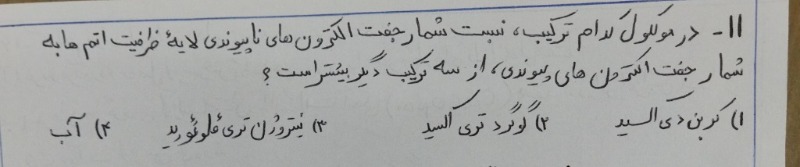 ۱۱- در مولکول کدام ترکیب، نسبت شمار جفت الکترون های ناپیوندی لایهٔ ظرفیت اتم ها به
شمار جفت الکترون های پیوندی، از سه ترکیب دیگر بیشتر است؟
۱) کربن دی اکسید ۲) گوگرد تری اکسید ۳) نیتروژن تری فلوئورید ۴) آب